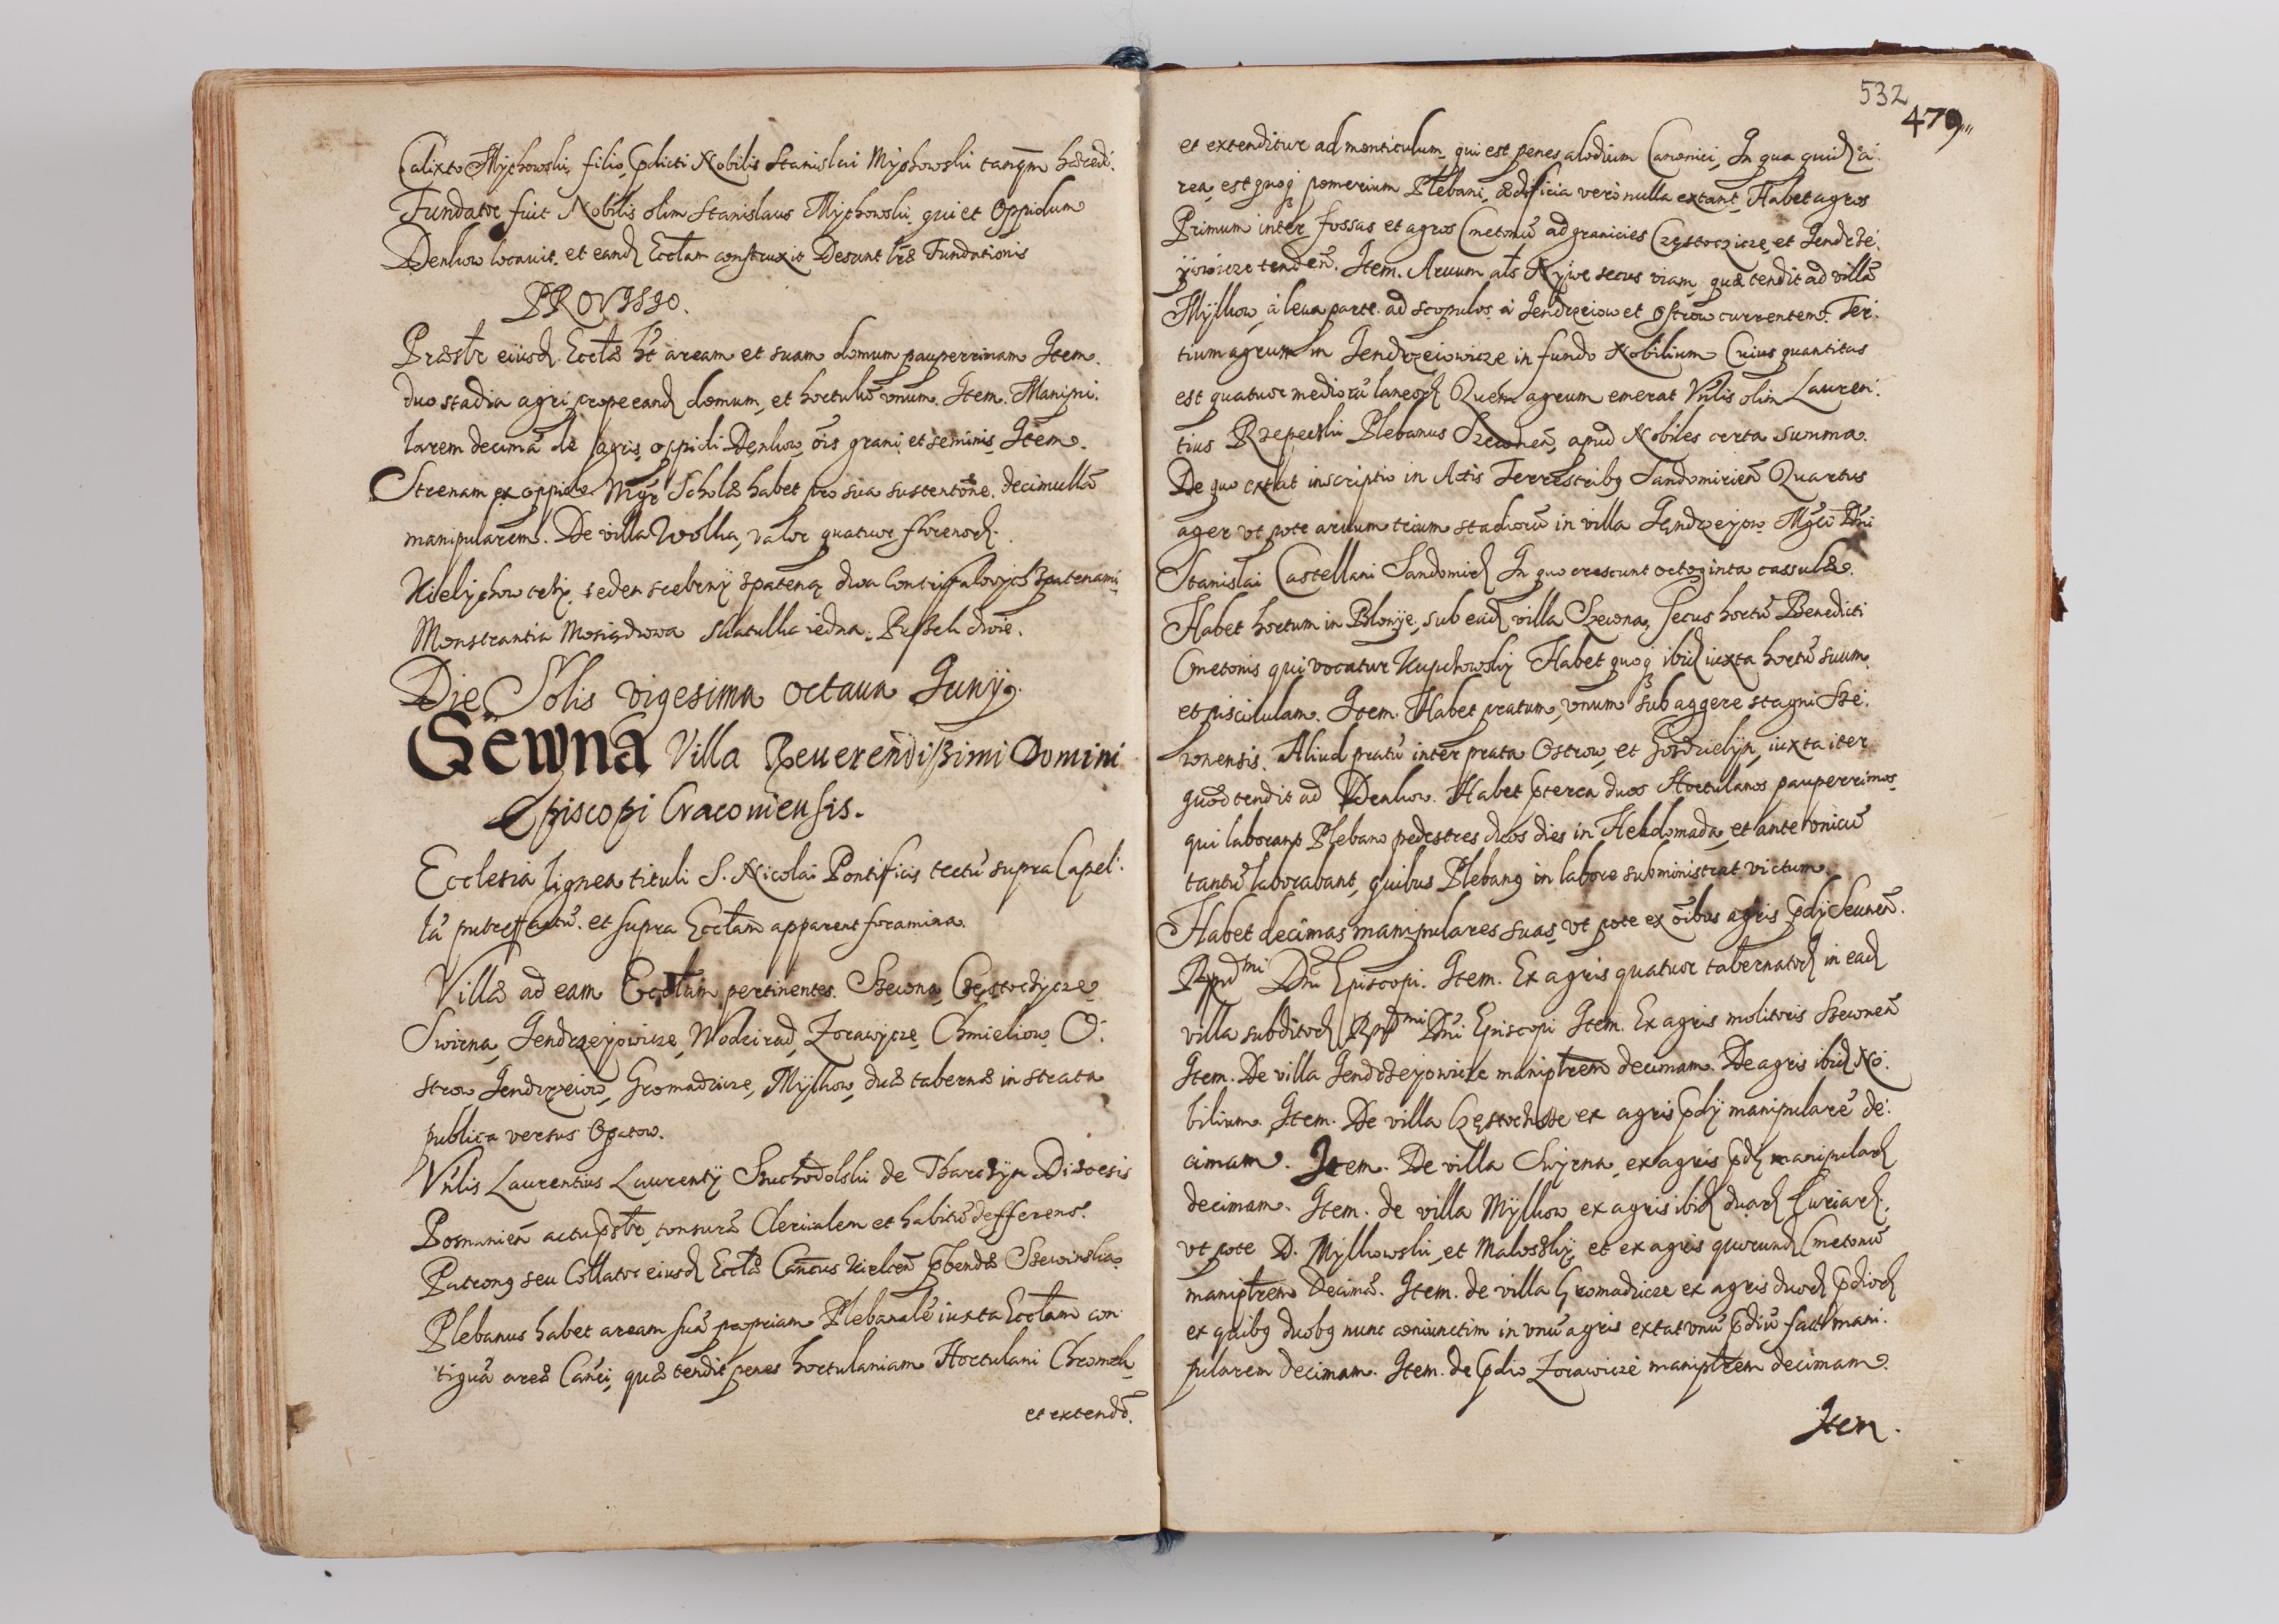 Calixto Mychowski, filio, pdicti Nobilis Stanislai Mychowski tanqm hæredi.
Fundator fuit Nobilis olim Stanislaus Mychowski qui et Oppidum
Denkow locauit. et eand Ecclam construxit Desunt lræ Fundationis
PROVISIO.
Præsbr eiusd Ecclæ ht aream et suam domum pauperrimam Item.
duo stadia agri prope eand domum, et hortulũ vnum. Item. Manipu:
larem decimã de agris oppidi Denkow, õis grani et seminis Item.
Strenam ex oppido. Mgr Scholæ habet pro sua sustentõne. decimullã
manipularem. De villa Wolka, valor quatuor florenor.
Kielychow trzy. ieden srebrny spateną dwa spatenami
Monstrantia Mosiądzowa skatulka iedna. Pußek dwie.
Die Solis vigesima octaua Junÿ.
Sewna Villa Reuerendißimi Domini
Episcopi Cracouiensis.
Ecclesia lignea tituli S. Nicolai Pontificis tectũ supra Capel:
lã putrefactũ. et supra Ecclam apparent foramina.
Villæ ad eam Ecclam pertinentes. Szewna, Częstoczycze
Swirna, Jendrzeyowicze, Wodzirad, Zorawycze, Chmieliow O:
strow Jendrzeiow, Gromadzicze, Mÿlkow, duæ tabernæ in strata
publica versus Opatow.
Vnlis Laurentius Laurentÿ Suchodolski de Tharczyn Diæcesis
Posnanien actu psbr, tonsurã Clericalem et habitũ defferens.
Patronq seu Collator eiusd Ecclæ Cancus Kielcen pbendæ Szewinska
Plebanus habet aream suã propriam Plebanalẽ iuxta Ecclam con
tiguã areæ Canci, quæ tendit penes hortulaniam Hortulani Chromek
et extendd.
532
479
et extenditur ad monticulum, qui est penes alodium Canonici, In qua quid a:
rea, est quoq pomerium Plebani, ædificia verò nulla extant, Habet agros
Primum inter fossas et agros Cmetonũ ad granicies Częstoczicze, et Jendrze:
jowicze tenden. Item. Aruum als Nÿwe secus viam, quæ tendit ad villã
Mÿlkow, à leua parte. ad scopulos à Jendrzeiow et Ostrow currentem. Ter:
tium agrum in Jendrzeiowicze in fundo Nobilium Cuius quantitas
est quatuor mediorũ laneor Quem agrum emerat Vnlis olim Lauren:
tius Rzepecki Plebanus Szewnen, apud Nobiles certa summa.
De quo extat inscriptio in Actis Terrestribq Sandomirien Quartus
ager vt pote aruum trium stadiorũ in villa Jendrzeyow Mgci Dni
Stanislai Castellani Sandomir In quo crescunt octoginta cassulæ.
Habet hortum in Blonÿe, sub ead villa Szewna, secus hortũ Benedicti
Cmetonis qui vocatur Kupchowsky Habet quoq ibid iuxta hortũ suum
et piscinulam. Item. Habet pratum, vnum sub aggere stagni Sze:
wnensis. Aliud pratũ inter prata Ostrow, et Gordzielyn, iuxta iter
quod tendit ad Denkow. Habet pterea duos Hortulanos pauperrimos
qui laborant Plebano pedestres duos dies in Hebdomada, et ante vnicũ
tantũ laborabant, quibus Plebanq in labore subministrat victum.
Habet decimas manipulares suas, vt pote ex oĩbus agris pdÿ Seunen.
Rndmi Dni Episcopi. Item. Ex agris quatuor tabernator in ead
villa subditor Rndmi Dni Episcopi Item. Ex agris molitoris Szewnen
Item. De villa Jendrzeyowicze maniplrem decimam. De agris ibid No:
bilium. Item. De villa Częstochsse ex agris pdÿ manipularẽ de:
cimam. Item. De villa Swyrna, ex agris pdÿ manipular
decimam. Item. de villa Mÿlkow ex agris ibid duar Curiar.
vt pote D. Mÿlkowski, et Maloszky, et ex agris quorund Cmetonũ
maniplrem Decimã. Item. de villa Gromadzicze ex agris duor pdior
ex quibq duobq nunc coniunctim in vnũ agris extat vnũ pdiũ fact mani:
pularem decimam. Item. de pdio Zorawicze maniplrem decimam.
Item.